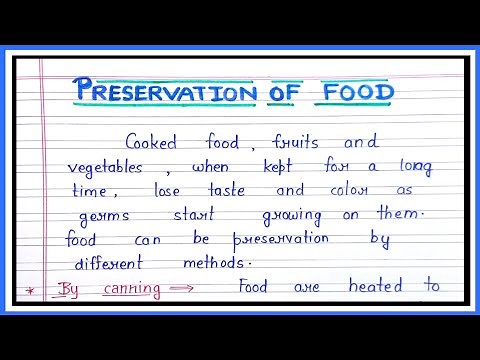 PRESERVATION OF FOOD
Cooked food, fruits and
vegetables, when kept for a long
time, lose taste and color as
germs start growing on them.
food can be preservation by
different methods.
* By canning ⟹ Food are heated to